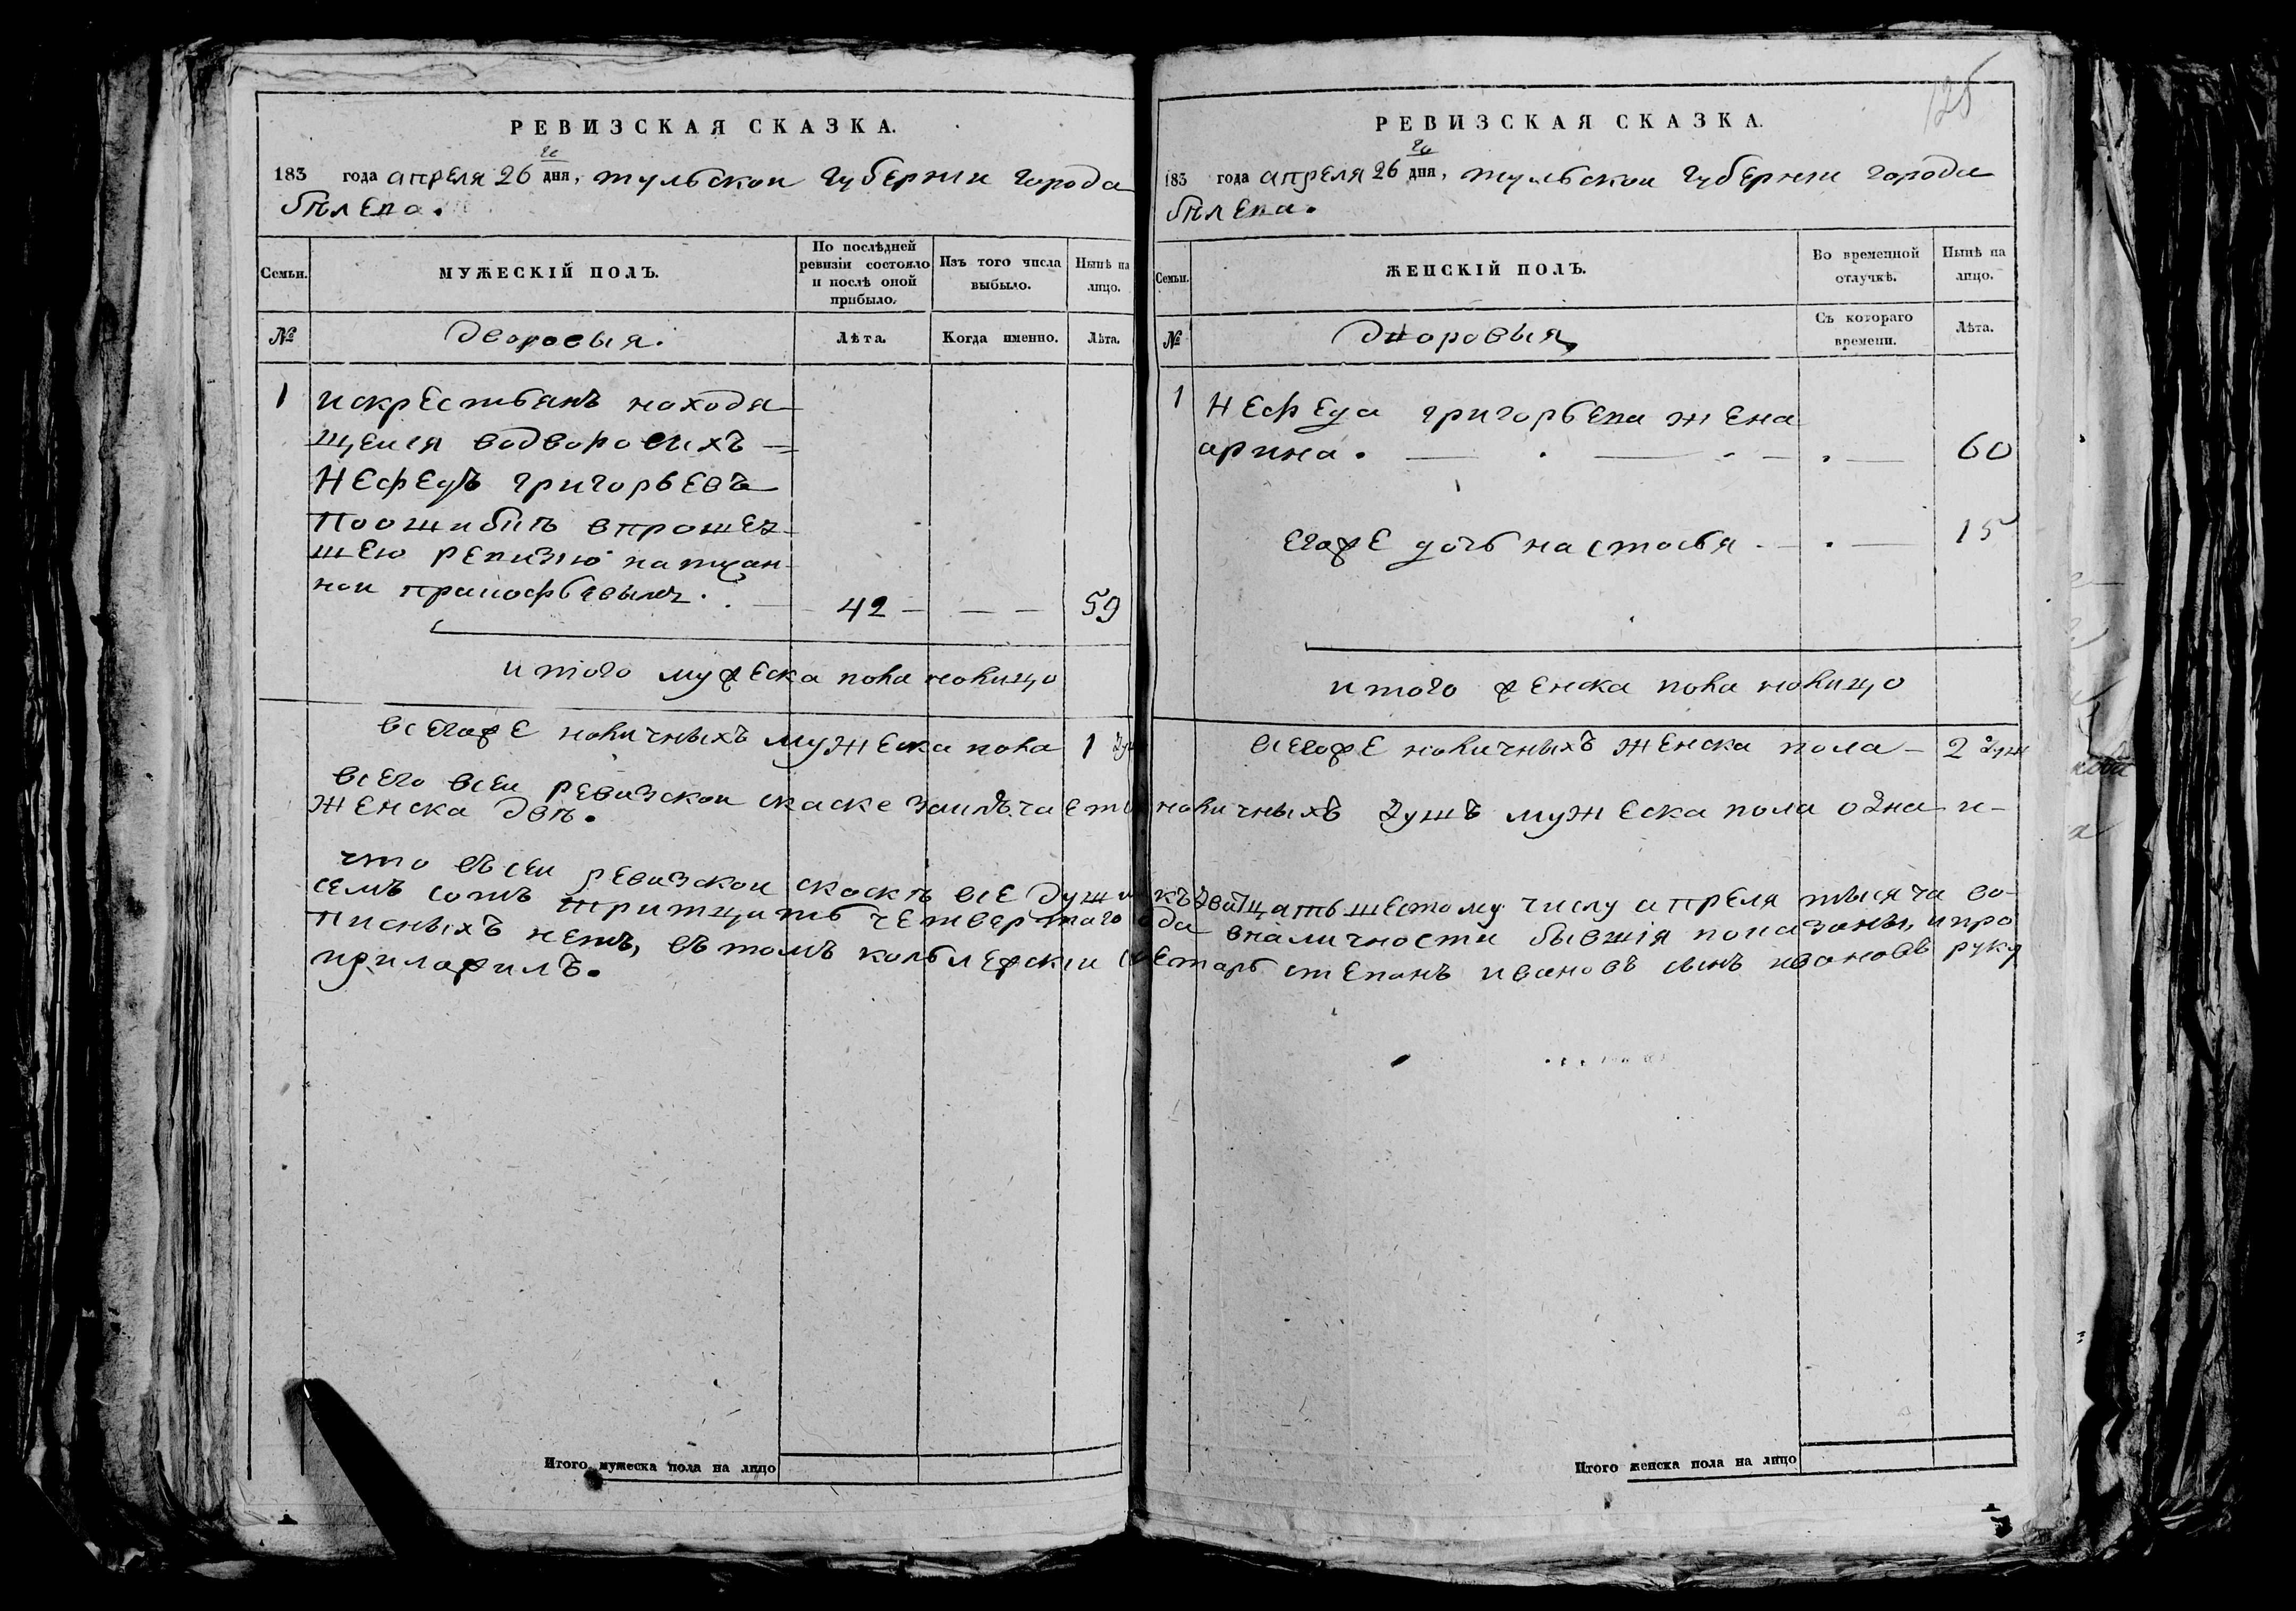 РЕВИЗСКАЯ СКАЗКА.
183 года апреля 26 го дня, тульскои губернии города
бѣлева.
Семьи. МУЖЕСКІЙ ПОЛЪ. По послѣдней ревизіи состояло и послѣ оной прибыло. Изъ того числа выбыло. Нынѣ на лицо.
№ дворовыя. Лѣта. Когда именно. Лѣта.
1 искрестьянъ находя
щеися водворовыхъ
нефедъ григорьевъ
поошибкѣ впрошед
шею ревизію
42 59
итого мужеска пола налицо
всегоже наличныхъ мужеска пола 1 душ
РЕВИЗСКАЯ СКАЗКА.
125
183 года апреля 26 го дня, тульскои губернии города
бѣлева.
Семьи. ЖЕНСКІЙ ПОЛЪ. Во временной отлучкѣ. Нынѣ на лицо.
№ дворовыя, Съ котораго времени. Лѣта.
1 нефеда григорьева жена
арина. 60
егоже дочь настасья 15
итого женска пола налицо
всегоже наличныхъ женска пола 2 душ
всего всеи ревизскои скаске наличныхъ душъ мужеска пола одна и
женска двѣ.
что въсеи ревизскои скаскѣ все души къ двадцать шестому числу апреля тысяча во
семъ сотъ тритцать четвертаго года вналичности бывшія показаны, ипро
писныхъ нетъ, въ томъ степанъ ивановъ сынъ ивановъ руку
приложилъ.
Итого мужеска пола на лицо
Итого женска пола на лицо